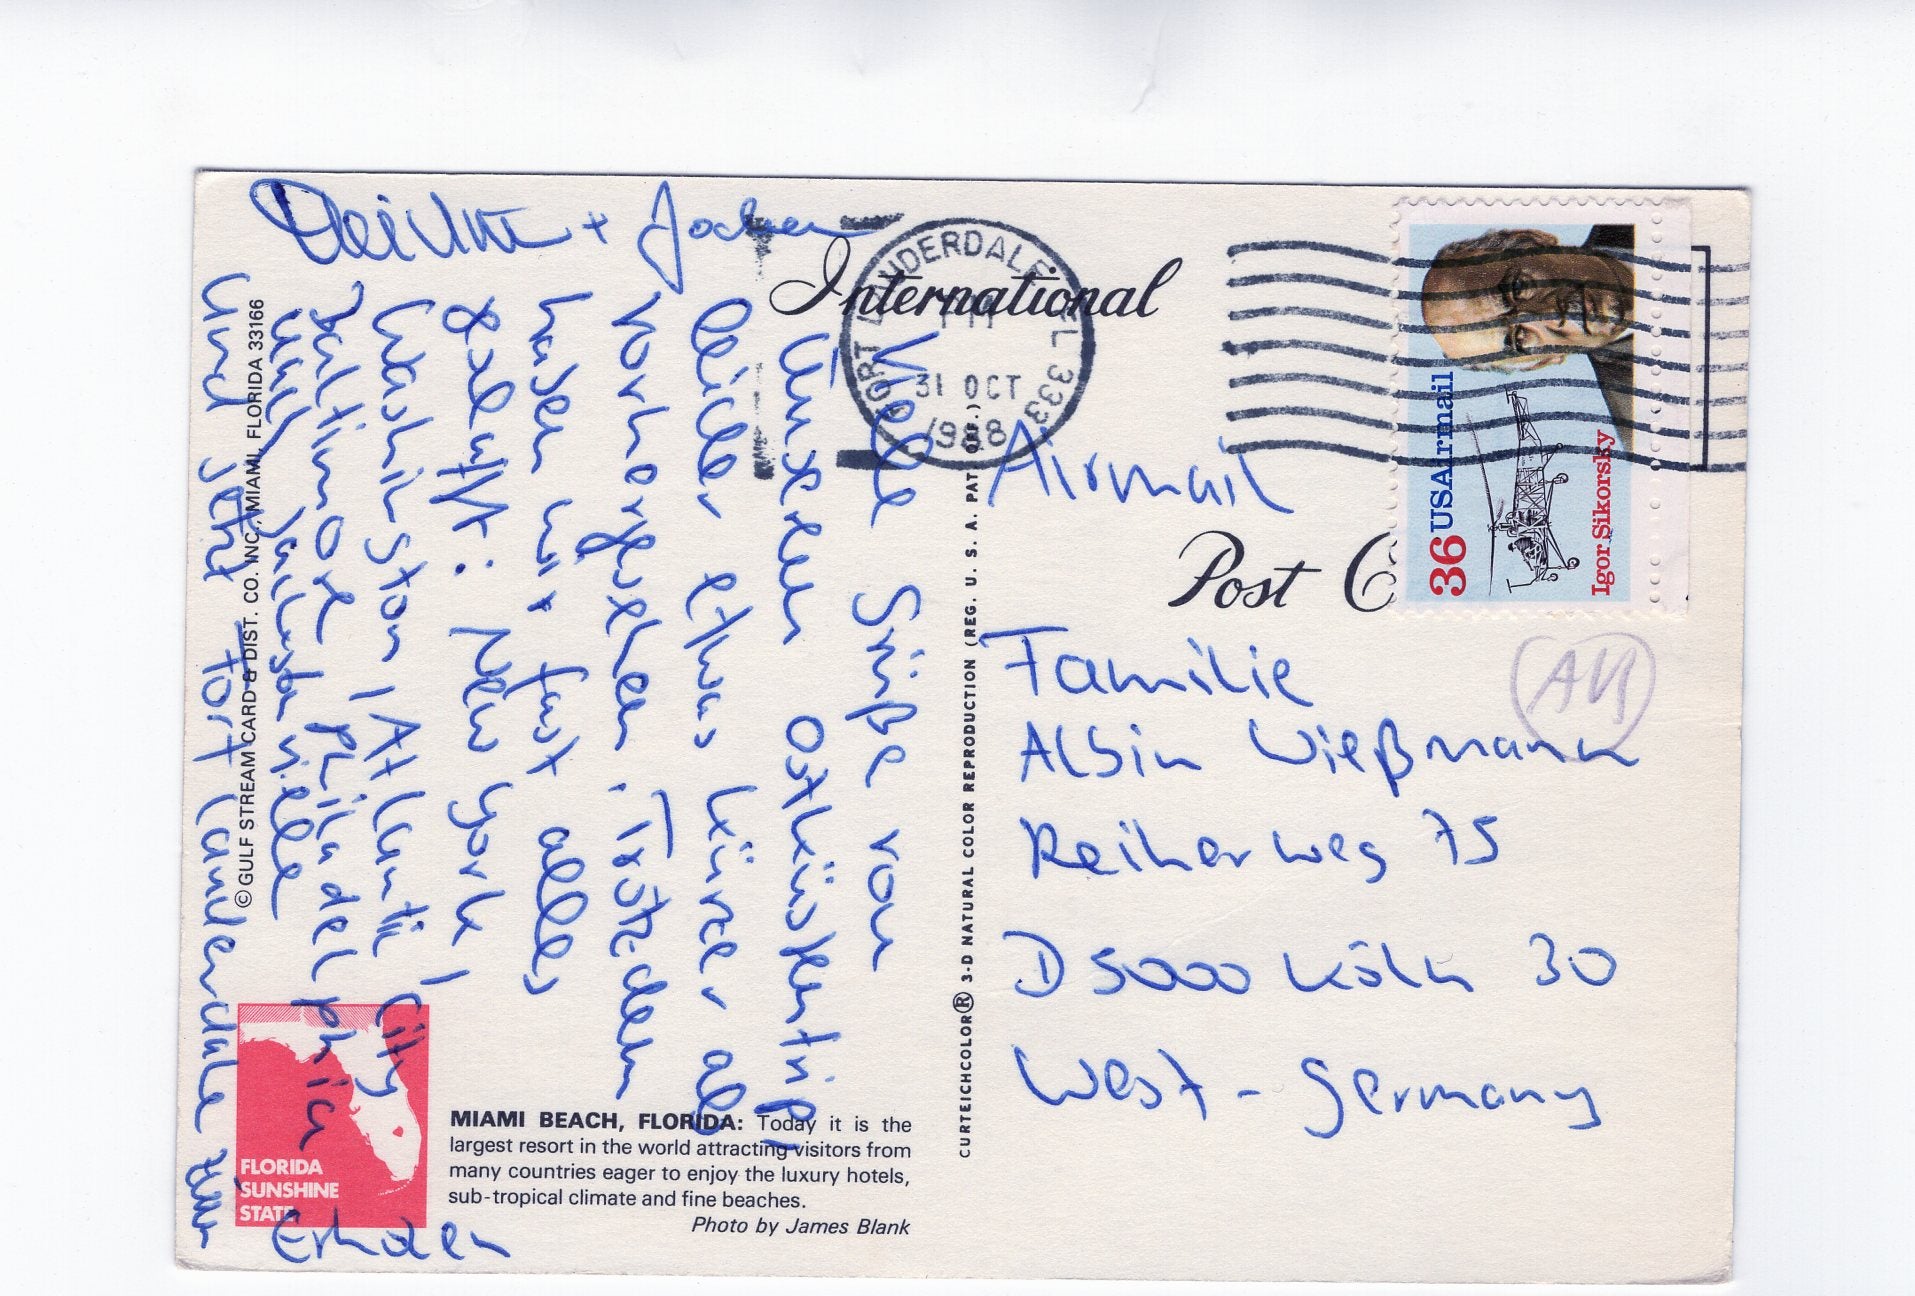 Viele Grüße von
unserem Ostküstentrip!
Leider etwas kürzer als
vorhergesehen. Trotzdem
haben wir fast alles
geschafft: New York /
Washington / Atlantic City /
Baltimore / Philadelphia
und jetzt Fort Lauderdale zum
Erholen
+ Jochen
International
Airmail
Post C
FORT LAUDERDALE FL 333
PM
31 OCT
1988
36 USAirmail
Igor Sikorsky
AB
Familie
Albin Wießmann
Reiherweg 75
D 5000 Köln 30
West-Germany
CURTEICHCOLOR® 3-D NATURAL COLOR REPRODUCTION (REG. U. S. A. PAT. OFF.)
© GULF STREAM CARD & DIST. CO. INC., MIAMI, FLORIDA 33166
FLORIDA
SUNSHINE
STATE
MIAMI BEACH, FLORIDA: Today it is the
largest resort in the world attracting visitors from
many countries eager to enjoy the luxury hotels,
sub-tropical climate and fine beaches.
Photo by James Blank